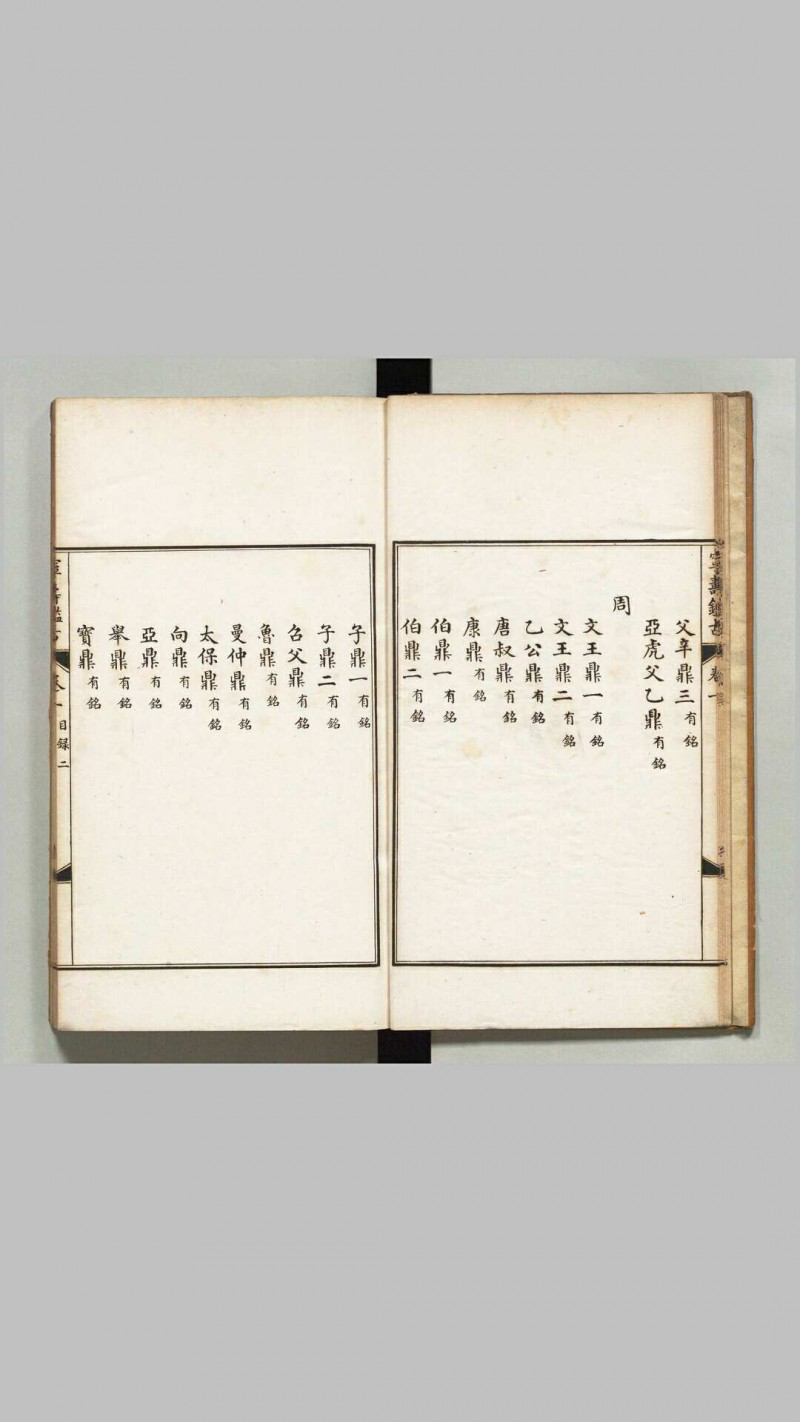 寧壽鑑古 卷一
父辛鼎三 有銘
亞虎父乙鼎 有銘
周
文王鼎一 有銘
文王鼎二 有銘
乙公鼎 有銘
唐叔鼎 有銘
康鼎 有銘
伯鼎一 有銘
伯鼎二 有銘
子鼎一 有銘
子鼎二 有銘
召父鼎 有銘
魯鼎 有銘
曼仲鼎 有銘
太保鼎 有銘
向鼎 有銘
亞鼎 有銘
舉鼎 有銘
寶鼎 有銘
目録 二